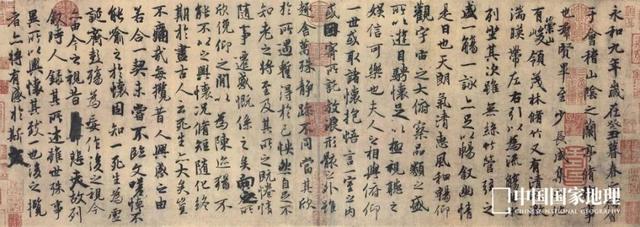 永和九年歲在癸丑暮春之初會
于會稽山陰之蘭亭脩禊事
也羣賢畢至少長咸集此地
有崇山峻領茂林脩竹又有清流激
湍暎帶左右引以為流觴曲水
列坐其次雖無絲竹管弦之
盛一觴一詠亦足以暢敘幽情
是日也天朗氣清惠風和暢仰
觀宇宙之大俯察品類之盛
所以遊目騁懷足以極視聽之
娛信可樂也夫人之相與俯仰
一世或取諸懷抱悟言一室之內
或因寄所託放浪形骸之外雖
趣舍萬殊靜躁不同當其欣
於所遇蹔得於己怏然自足不
知老之將至及其所之既惓情
隨事遷感慨係之矣向之所
欣俛仰之閒以為陳迹猶不
能不以之興懷況脩短隨化終
期於盡古人云死生亦大矣豈
不痛哉每攬昔人興感之由
若合一契未嘗不臨文嗟悼不
能喻之於懷固知一死生為虛
誕齊彭殤為妄作後之視今
亦由今之視昔悲夫故列
敘時人錄其所述雖世殊事
異所以興懷其致一也後之攬
者亦將有感於斯文
中国国家地理
CHINESE NATIONAL GEOGRAPHY